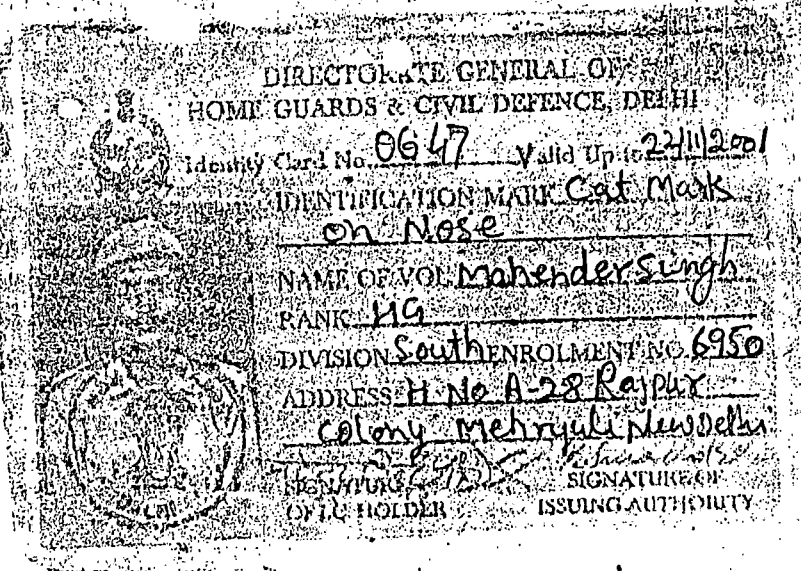 DIRECTORATE GENERAL OF
HOME GUARDS & CIVIL DEFENCE, DELHI
Identity Card No. 0647 Valid Up to 22/11/2001
IDENTIFICATION MARK Cat Mark
on Nose
NAME OF VOL Mahender Singh
RANK HG
DIVISION South ENROLMENT NO. 6950
ADDRESS H. No A-28 Rajpur
Colony Mehryuli New Delhi
SIGNATURE SIGNATURE OF
OF I.C. HOLDER ISSUING AUTHORITY